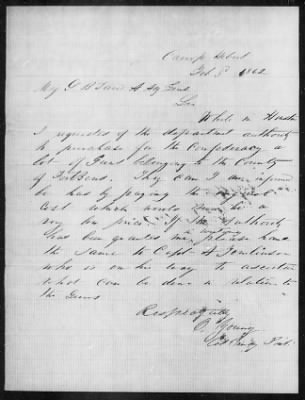 Camp Hebert
Feb 5 1862
Maj G B
Sir
While in Houston
I requested of the department authority
to purchase for the Confederacy a
lot of Guns belonging to the County
of Fort Bend. They can I am informed
be had by paying the
cost which would be a
very low price. If the authority
has been granted me please hand
the same to Capt Tomlinson
who is on his way to ascertain
what can be done in relation to
the Guns
Respectfully
O. Young